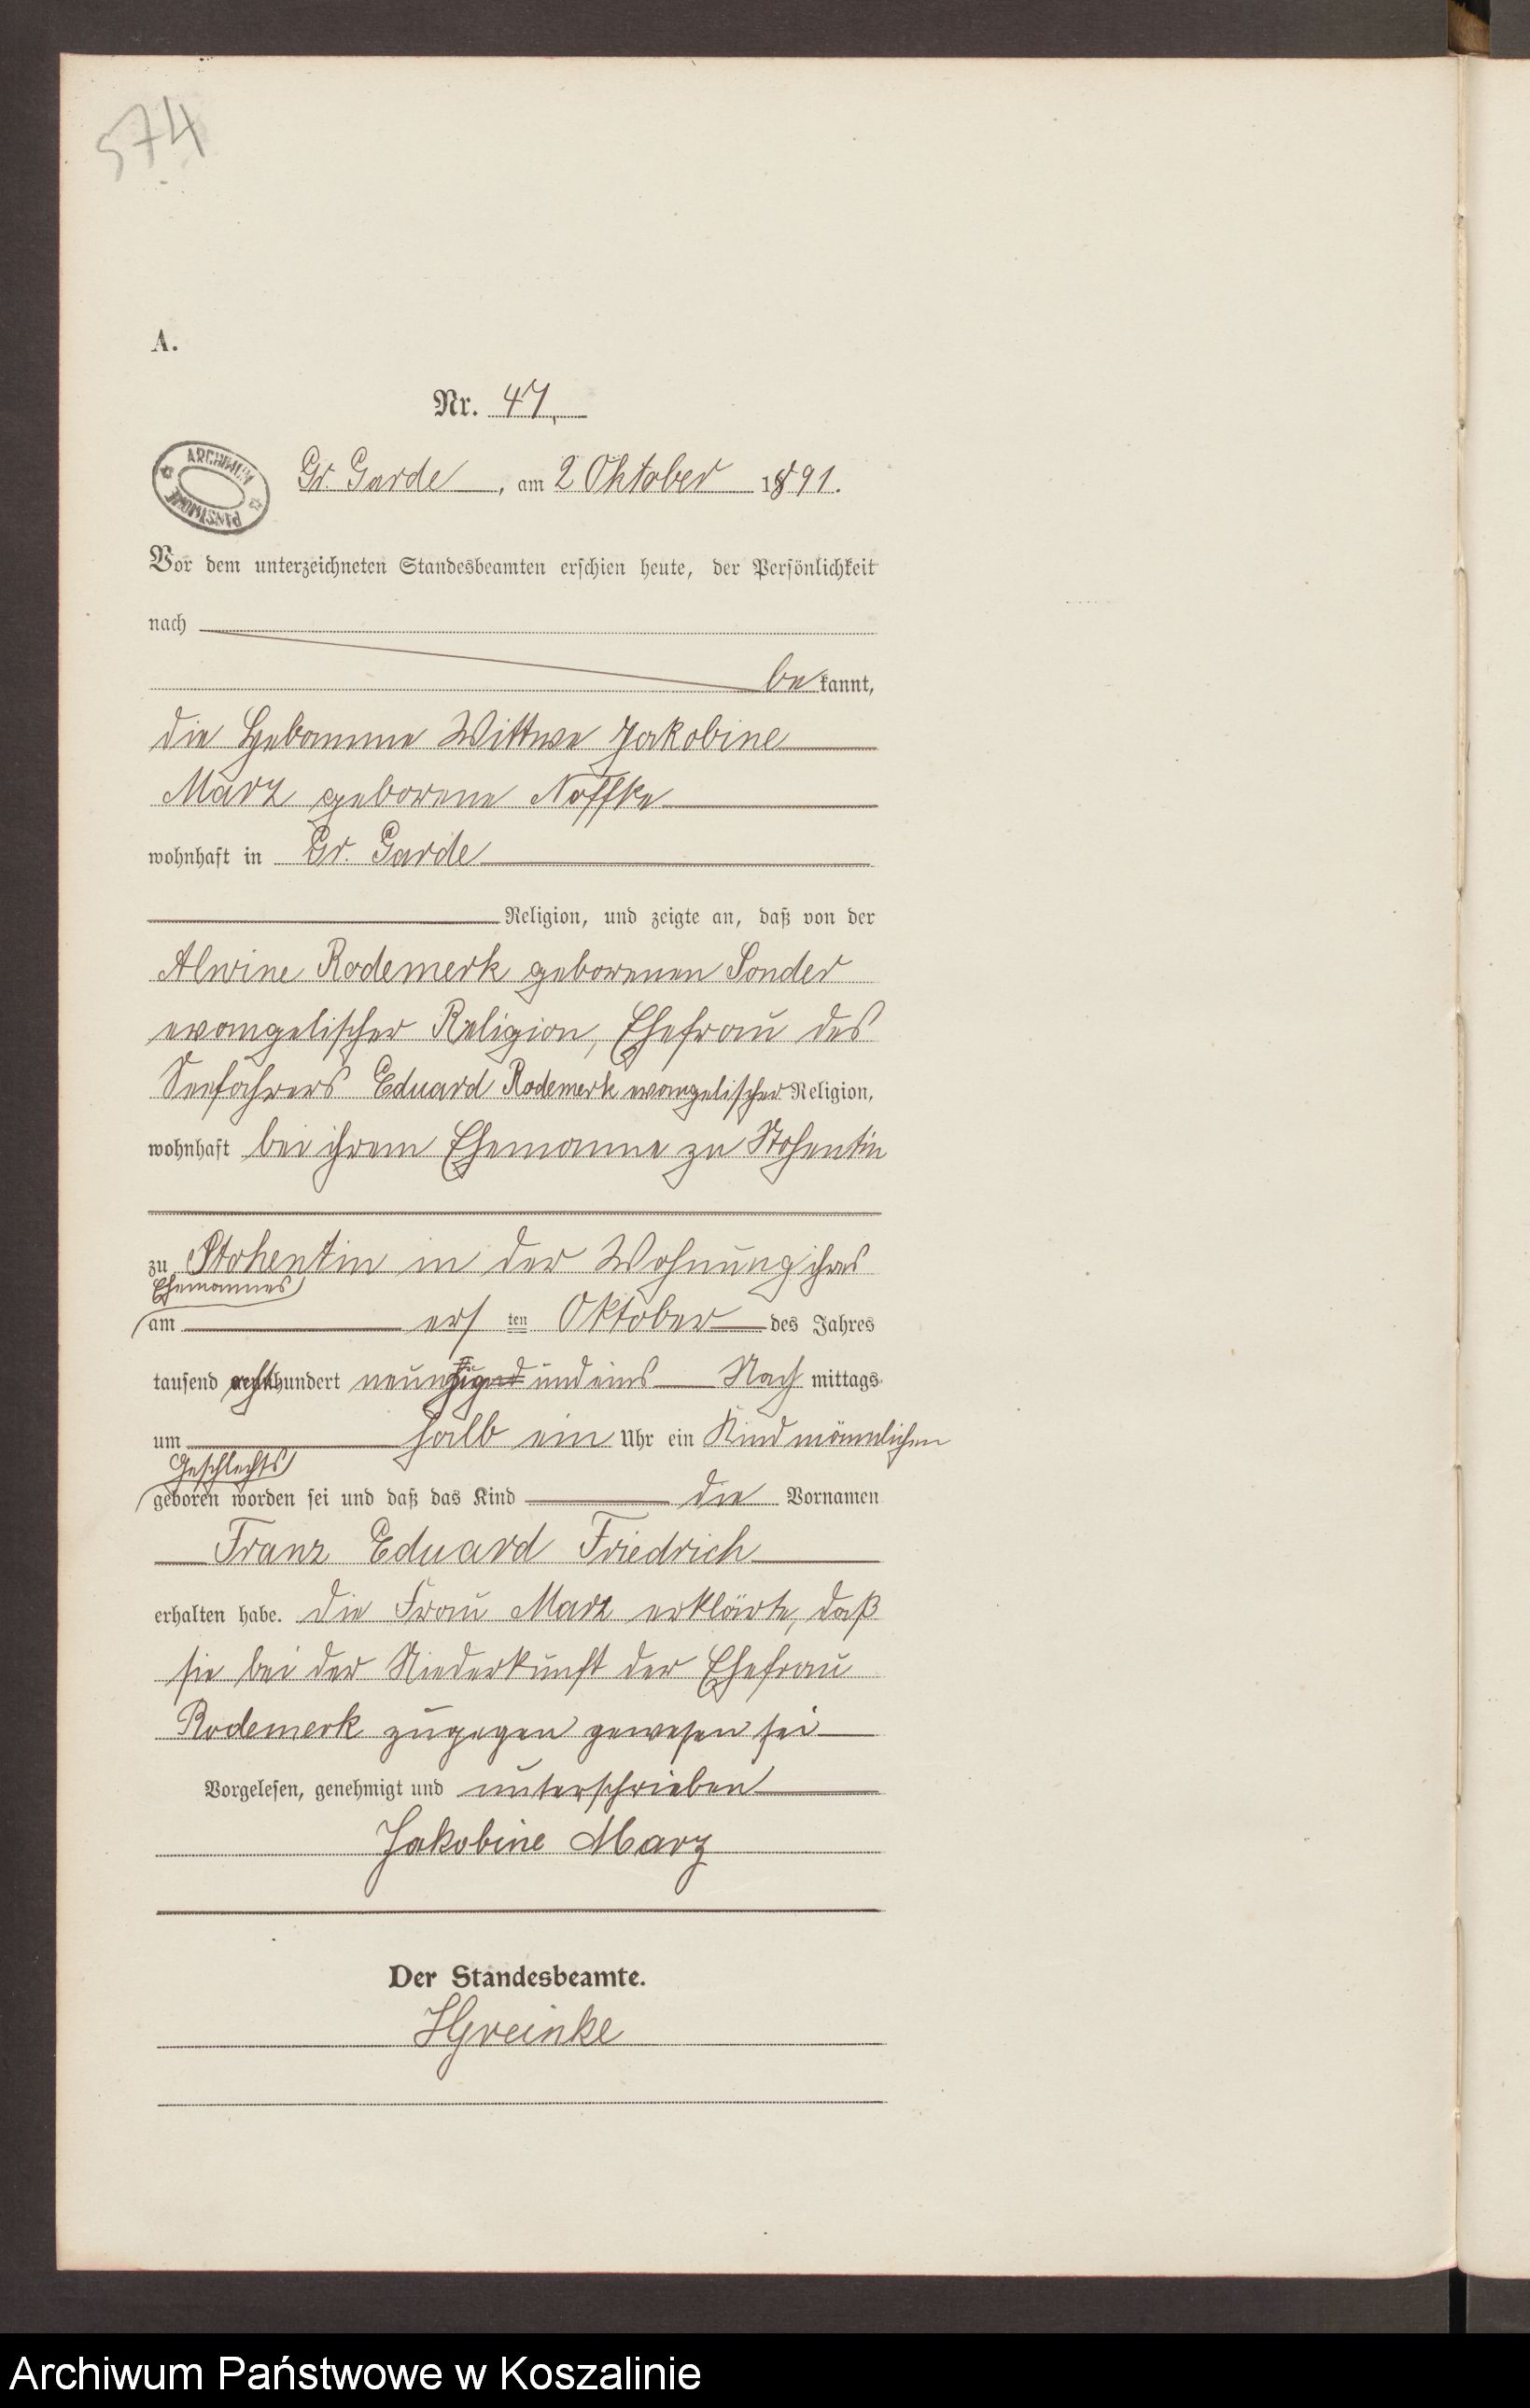 574
A.
Nr. 47.
ARCHIWUM PAŃSTWOWE
Gr. Garde, am 2 Oktober 1891.
Vor dem unterzeichneten Standesbeamten erschien heute, der Persönlichkeit
nach
bekannt,
die Hebamme Wittwe Jakobine
Marz geborene Noffke
wohnhaft in Gr. Garde
Religion, und zeigte an, daß von der
Alwine Rodemerk geborenen Sonder
evangelischer Religion, Ehefrau des
Seefahrers Eduard Rodemerk evangelischer Religion,
wohnhaft bei ihrem Ehemanne zu Stohentin
zu Stohentin in der Wohnung ihres
Ehemannes
am ersten Oktober des Jahres
tausend achthundert neunzig und eins Nachmittags
um halb ein Uhr ein Kind männlichen
Geschlechts
geboren worden sei und daß das Kind die Vornamen
Franz Eduard Friedrich
erhalten habe. Die Frau Marz erklärte, daß
sie bei der Niederkunft der Ehefrau
Rodemerk zugegen gewesen sei
Vorgelesen, genehmigt und unterschrieben
Jakobine Marz
Der Standesbeamte.
HGreinke
Archiwum Państwowe w Koszalinie